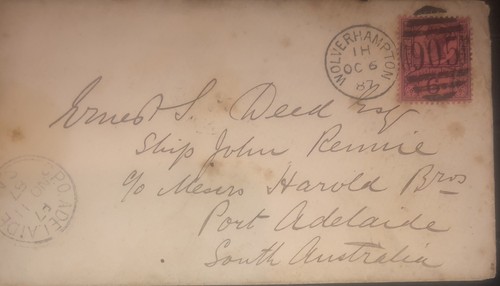 WOLVERHAMPTON
1H
OC 6
87
905
Ernest S. Deed Esq
Ship John Rennie
c/o Messrs Harold Bros
Port Adelaide
South Australia
ADELAIDE